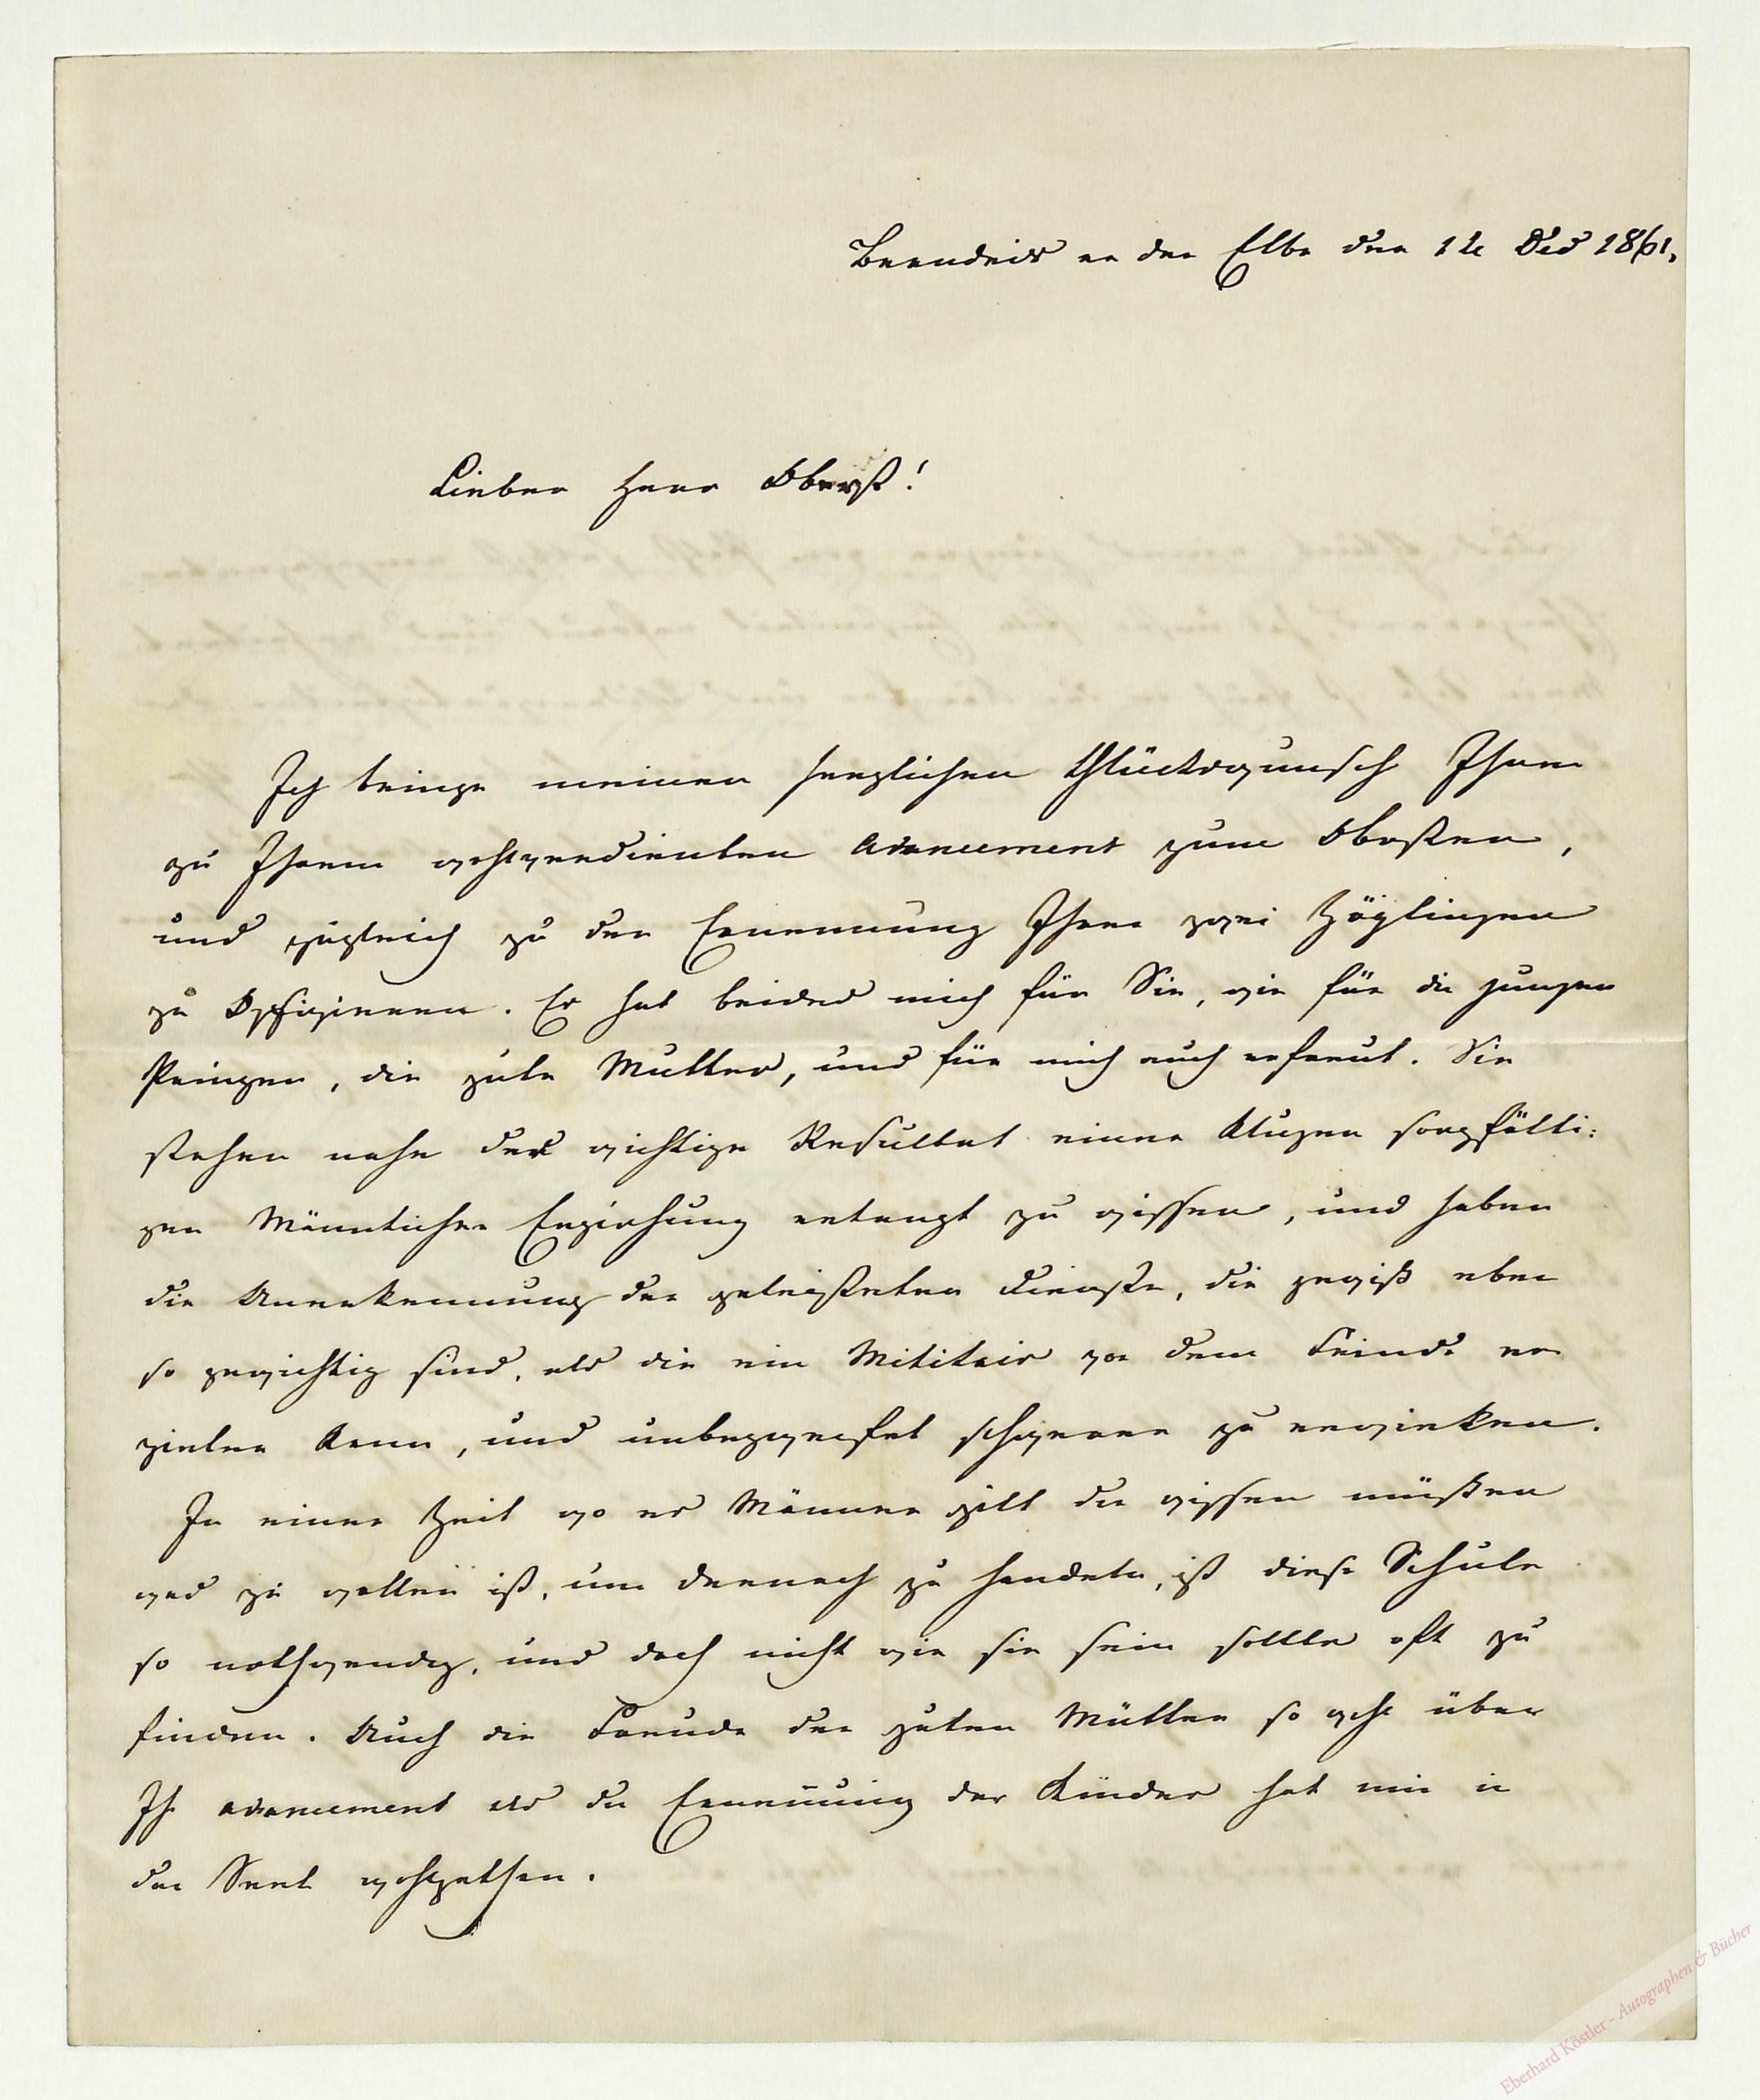 Brandeis an der Elbe den 12 Dec 1861.
Lieber Herr Oberst!
Ich bringe meinen herzlichen Glückswunsch Ihnen
zu Ihrem wohlverdienten Advancement zum Obersten,
und zugleich zu der Ernennung Ihrer zwei Zöglingen
zu Offizieren. Es hat beides mich für Sie, wie für die jungen
Prinzen, die gute Mutter, und für mich auch erfreut. Sie
stehen nahe das wichtige Resultat einer klugen sorgfälti:
gen Männlichen Erziehung erlangt zu wissen, und haben
die Anerkennung der geleisteten Dienste, die gewiß eben
so gewichtig sind, als die ein Militair vor dem Feinde er
zielen kann, und unbezweifelt schwerer zu erwirken.
In einer Zeit wo es Männer gilt die wissen müßen
was zu wollen ist, um darnach zu handeln, ist diese Schule
so nothwendig, und doch nicht wie sie sein sollte oft zu
finden. Auch die Freude der guten Mutter so wohl über
Ihr advancement als die Ernennung der Kinder hat mir in
der Seel wohlgethan.
Eberhard Köstler - Autographen & Bücher